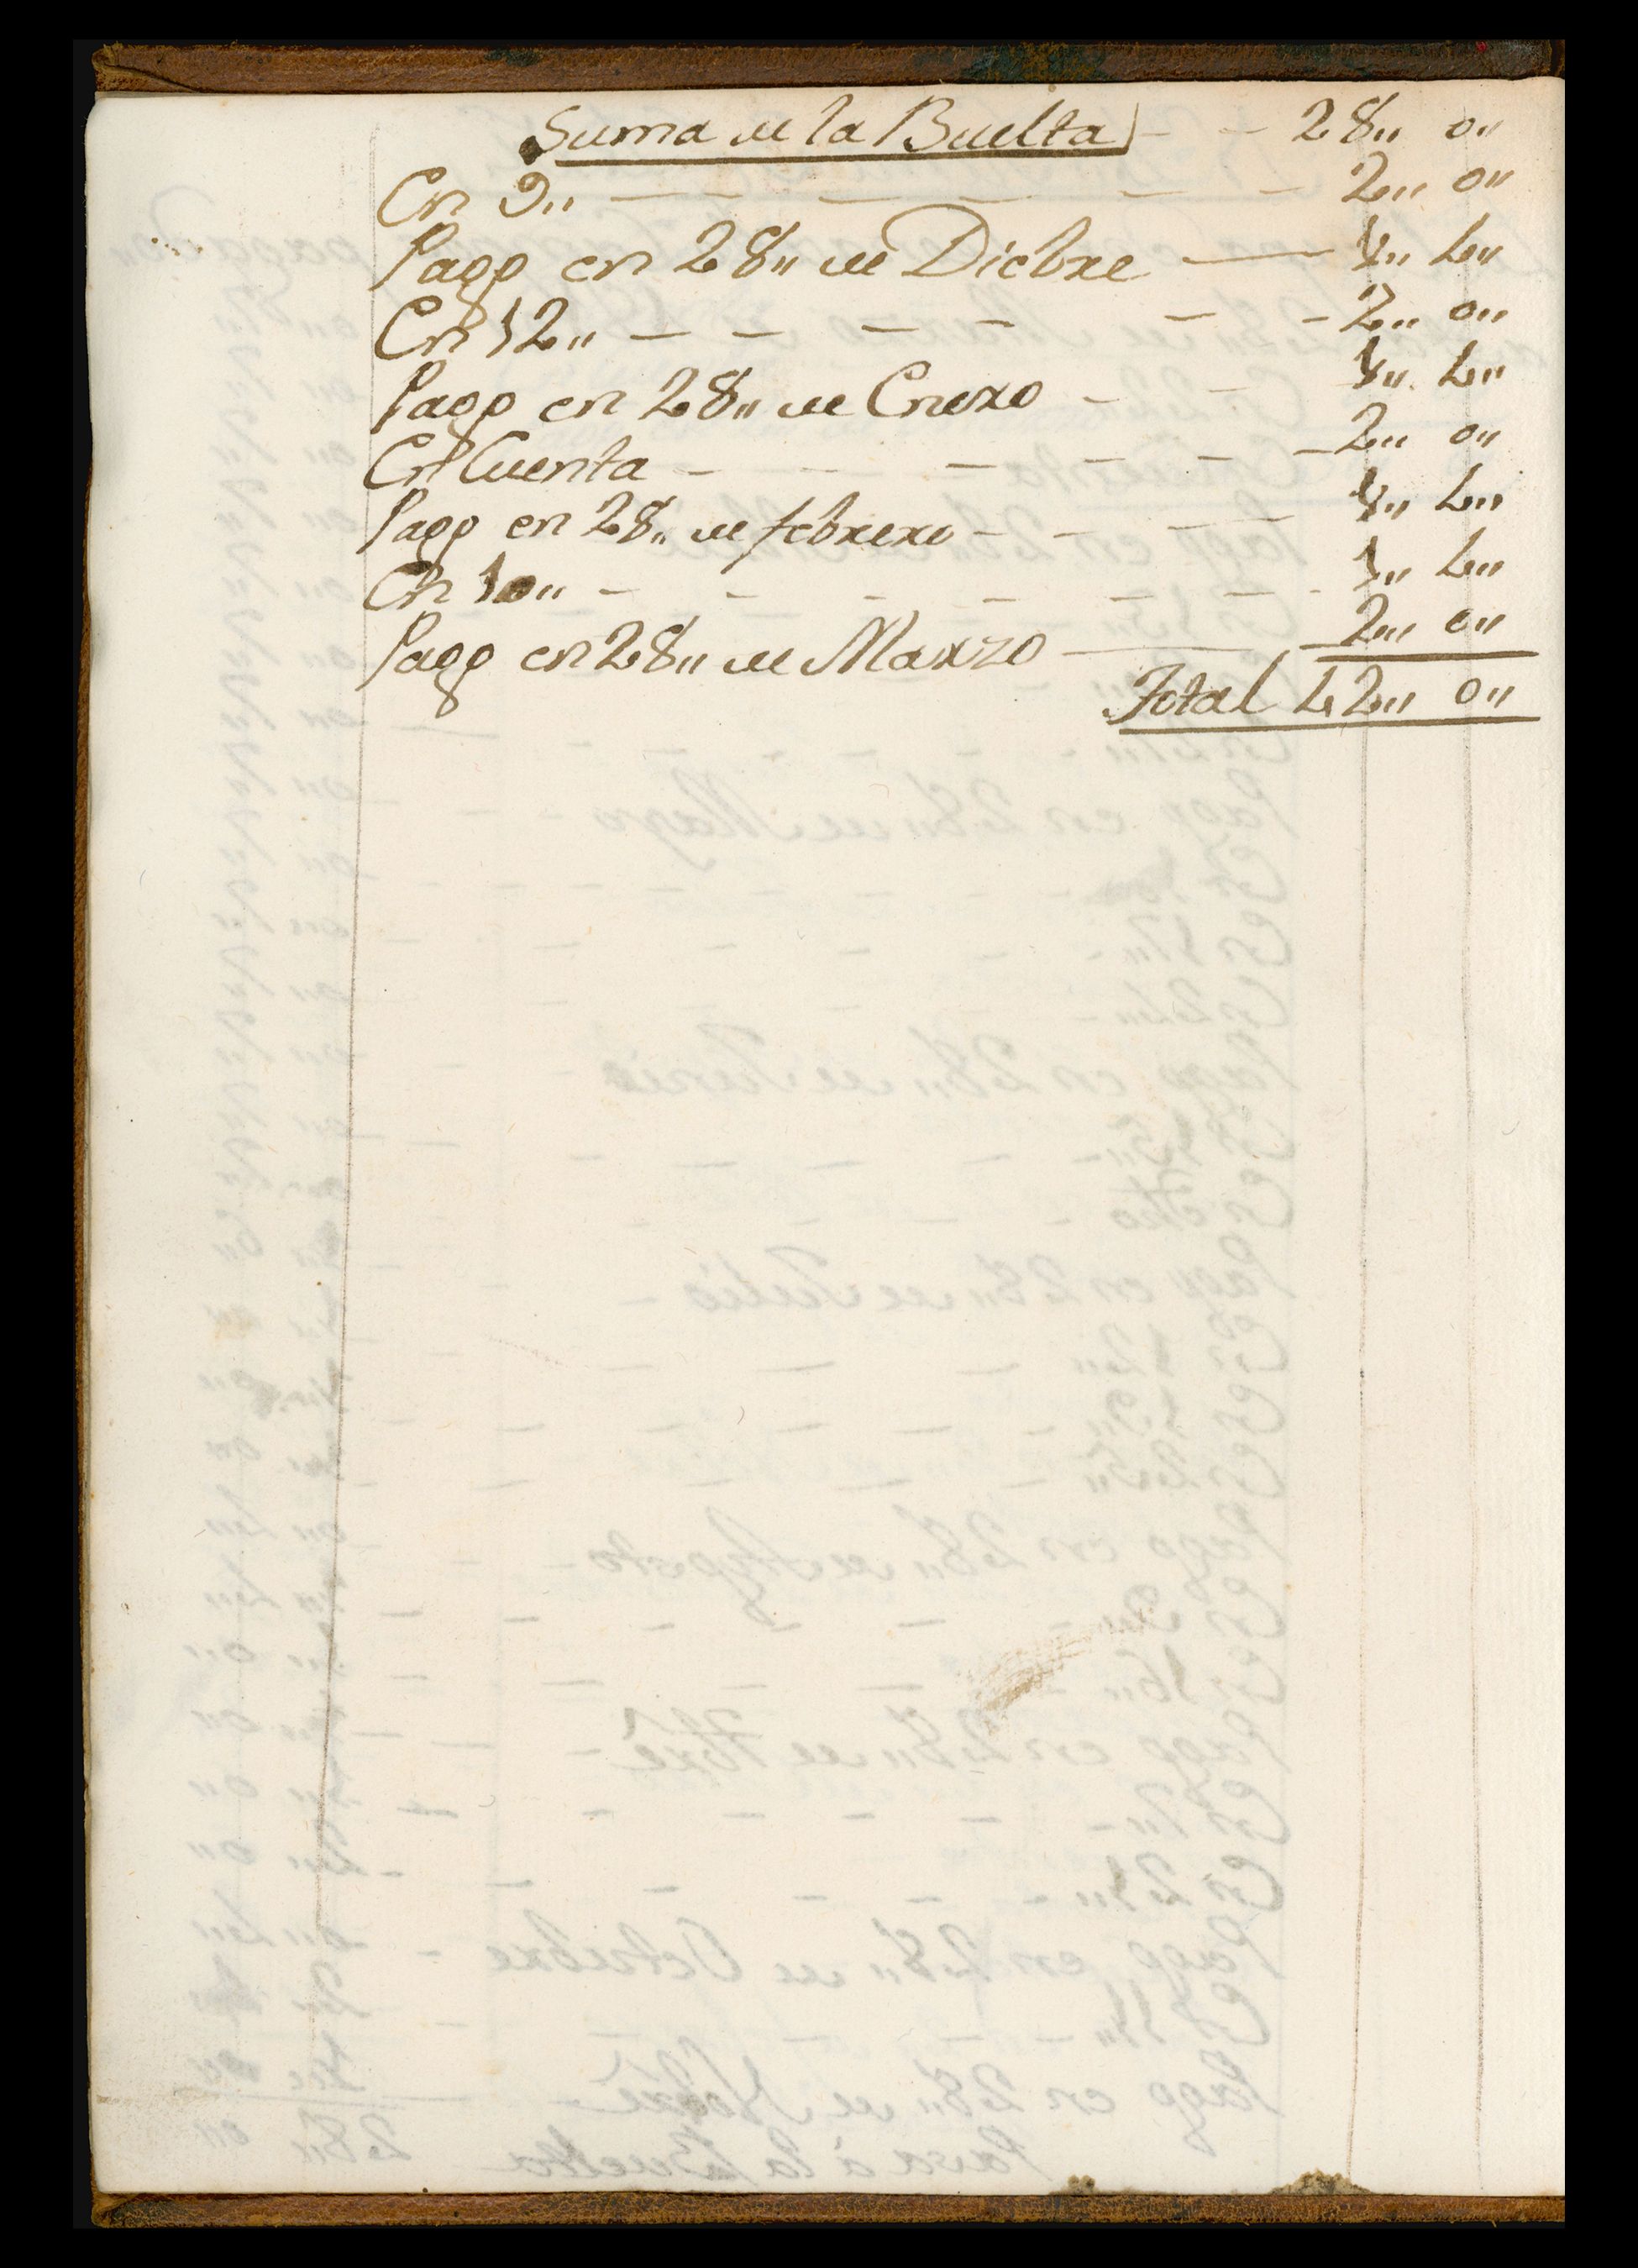 Suma de la Buelta - - 28,, 0,,
En 9,, - - - - - - 2,, 0,,
Pago en 28,, de Dicbre - 1,, 4,,
En 12,, - - - - - - 2,, 0,,
Pago en 28,, de Enero - - 1,, 4,,
En Cuenta - - - - - - 2,, 0,,
Pago en 28,, de febrero - - - - 1,, 4,,
En 10,, - - - - - - - 1,, 4,,
Pago en 28,, de Marzo - - 2,, 0,,
Total 42,, 0,,